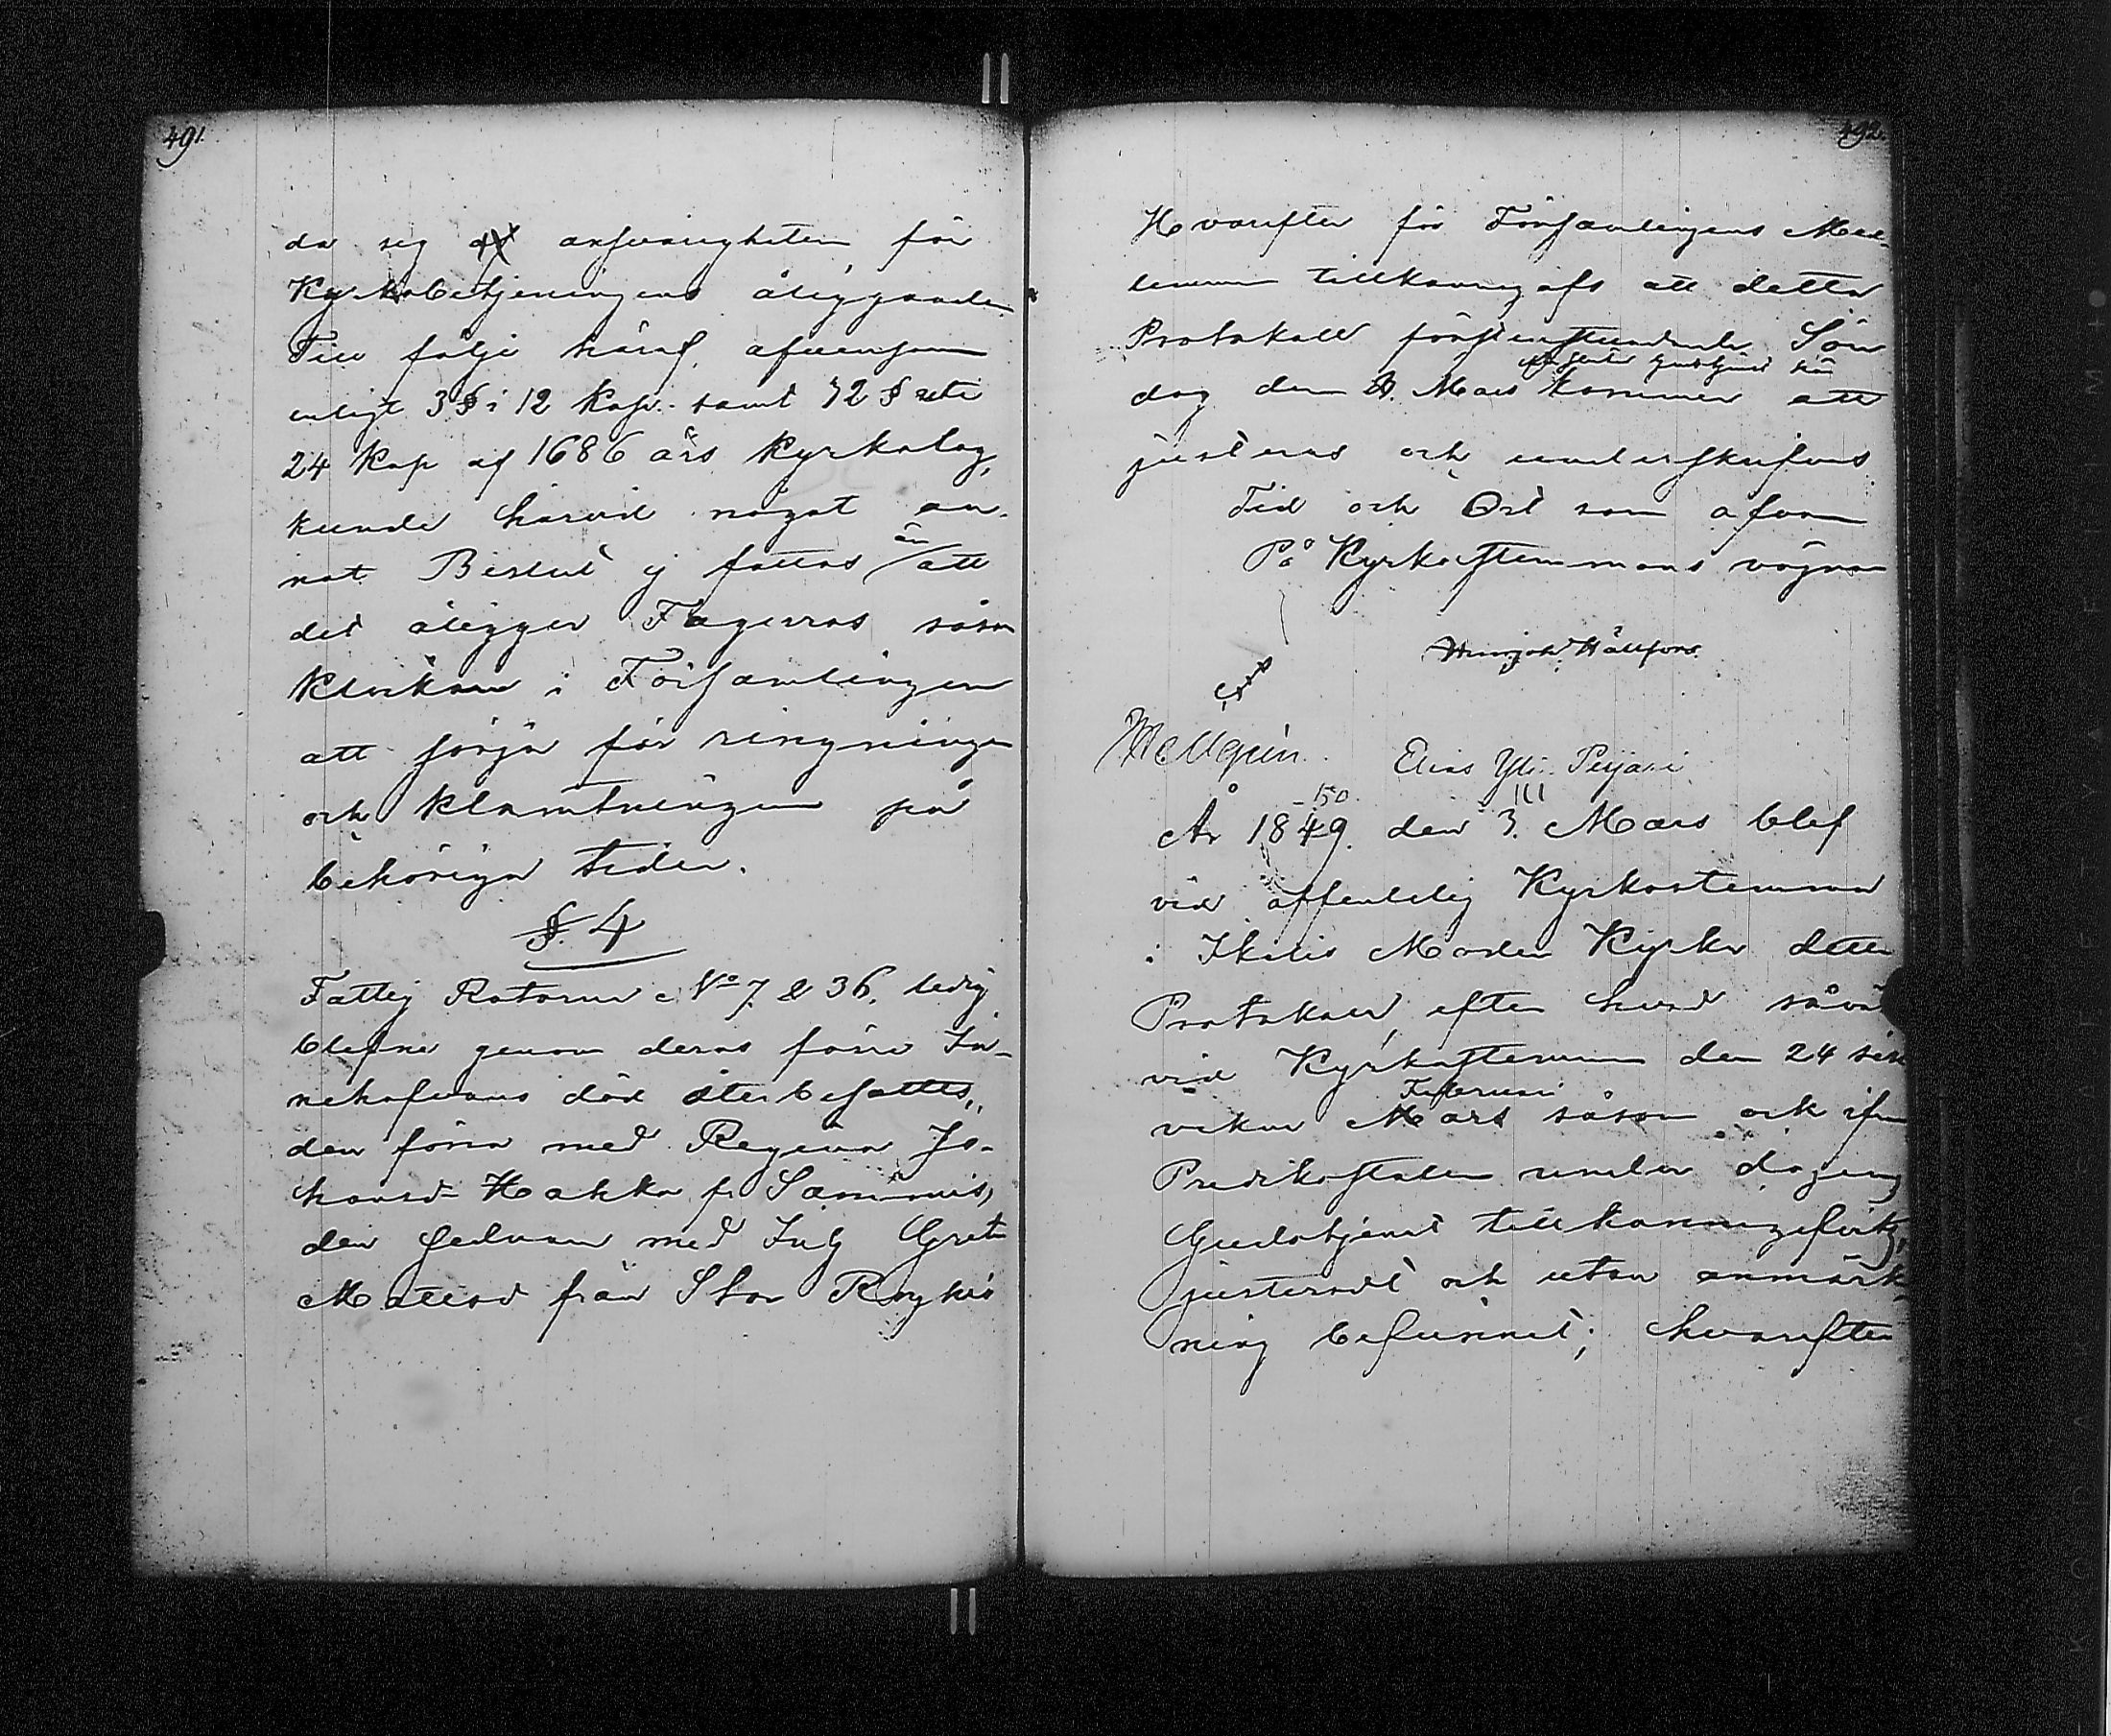 491.
da sig ansvarigheten för
Kyrkobetjeningens åligganden.
Till följe häraf, äfvensom
enligt 3 § i 12 Kap. samt 32 § uti
24 Kap af 1686 års Kyrkolag,
kunde härvid något an-
nat Beslut ej fattas än att
det åligger Fagerros såsom
Klockare i Församlingen
att sörja för ringningen
och klämtningen på
behöriga tider.
§. 4
Fattig Rotorne No 7 & 36, ledig
blefne genom deras förre In-
nehafvares död återbesattes,
den förra med Regina Jo-
hansd. Hakka fr Sammuis,
den sednare med Grets
Mattsd från Stor Röyhiö
492.
Hvarefter för Församlingens Med-
lemmar tillkännagafs att detta
Protokoll förstinstundande Sön
dag den Mars kommer att
justeras och underskrifvas.
Tid och Ort som ofvan
På Kyrkostemmans vägnar
Hällfors.
Mellgrén. Elias Yli Peijari
-50. III
År 1849. den 3. Mars blef
vid offentelig Kyrkostemma
i Ikalis Moder Kyrka detta
Protokoll, efter hvad såväl
vid Kyrkostemma den 24 sist
Februari
vekne Mars såsom ock ifrån
Predikostolen under dagens
Gudstjenst tillkännagifvits,
justeradt och utan anmärk-
ning befunnet; hvarefter